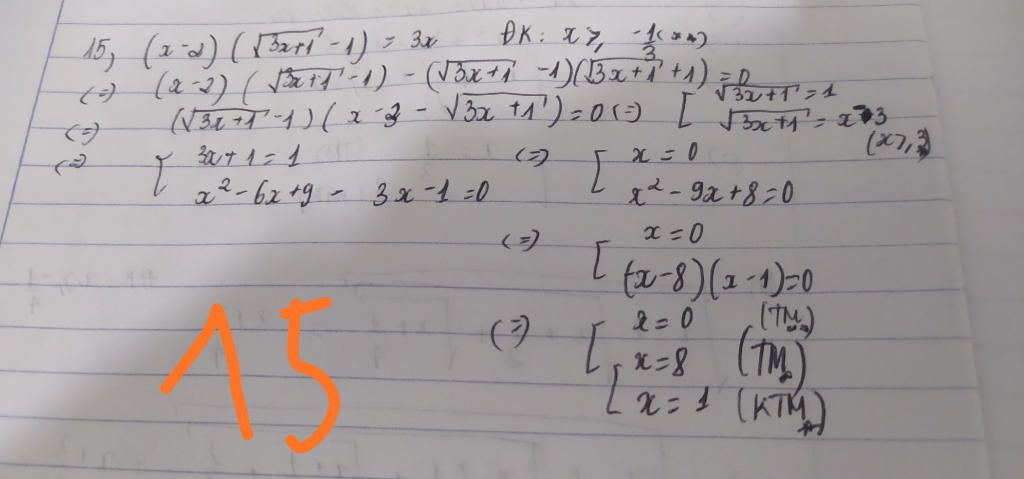 15, (x-2)(√3x+1 -1) = 3x ĐK: x ≥ -1/3 (**)
(=) (x-2)(√3x+1 -1) - (√3x+1 -1)(√3x+1 +1) = 0
(=) (√3x+1 -1)(x-3 - √3x+1) = 0 (=) [ √3x+1 = 1
√3x+1 = x-3 (x ≥ 3)
(=) [ 3x+1 = 1 (=) [ x = 0
x² - 6x + 9 - 3x - 1 = 0 x² - 9x + 8 = 0
(=) [ x = 0
(x-8)(x-1) = 0
(=) [ x = 0 (TM)
x = 8 (TM)
[ x = 1 (KTM)
15